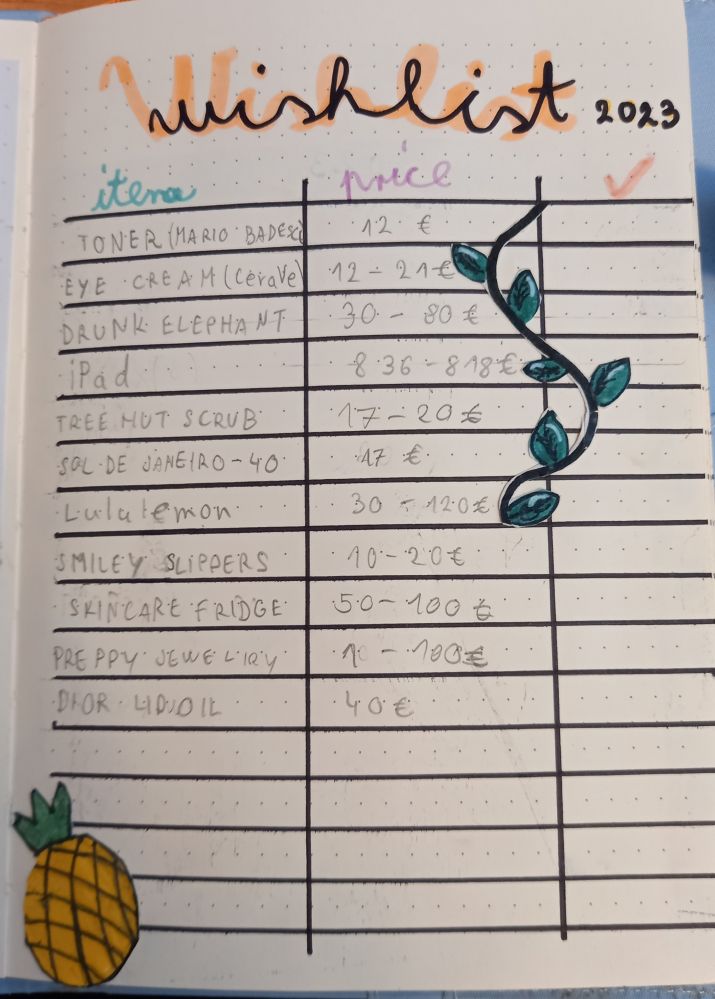 wishlist 2023
item price ✓
TONER (MARIO BADESCU 12 €
EYE CREAM (CeraVe) 12 - 21 €
DRUNK ELEPHANT 30 - 80 €
iPad 836 - 818 €
TREE HUT SCRUB 17 - 20 €
SOL DE JANEIRO - 40 17 €
Lululemon 30 - 120 €
SMILEY SLIPPERS 10 - 20 €
SKINCARE FRIDGE 50 - 100 €
PREPPY JEWELRY 10 - 100 €
DIOR 40 €